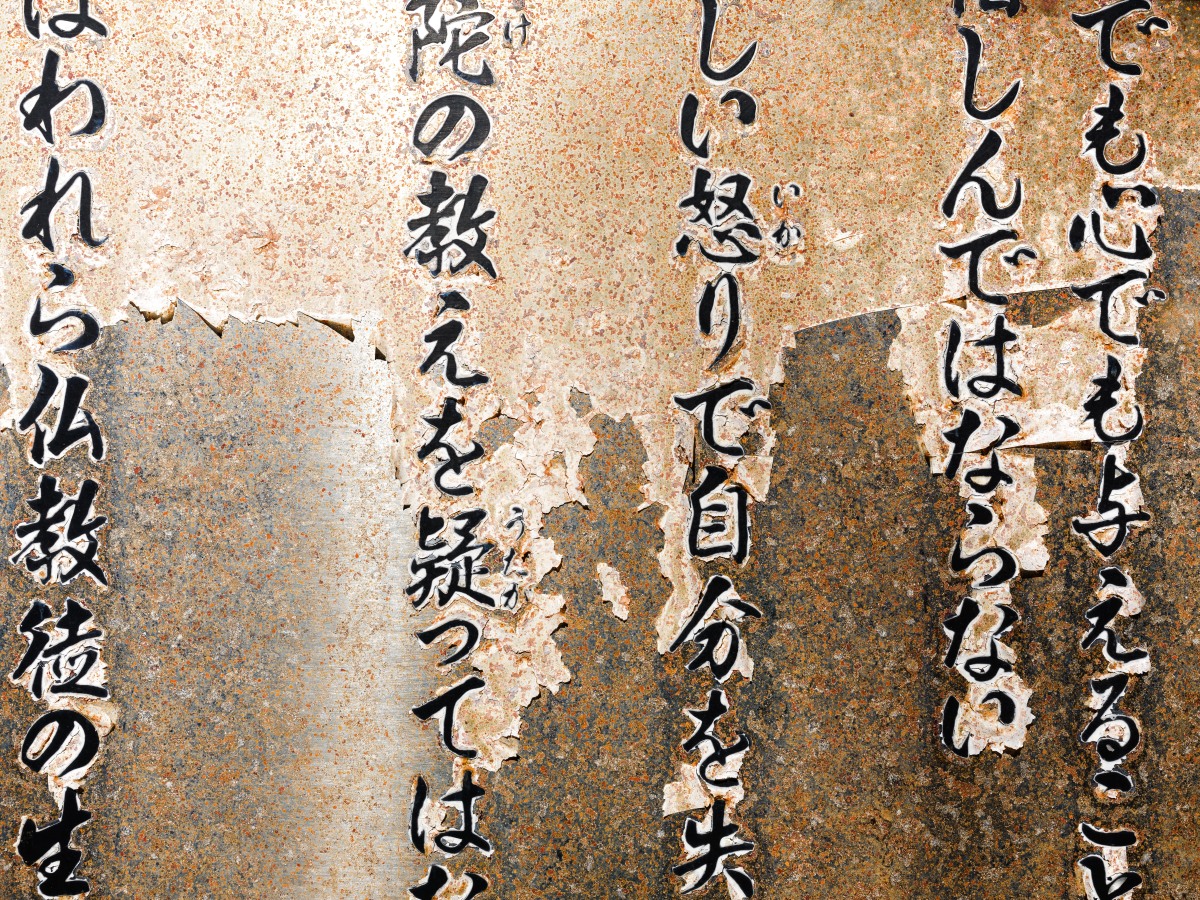 でも心でも与えること
しんではならない
しい怒りで自分を失
いか
陀の教えを疑ってはな
け
うたが
はわれら仏教徒の生